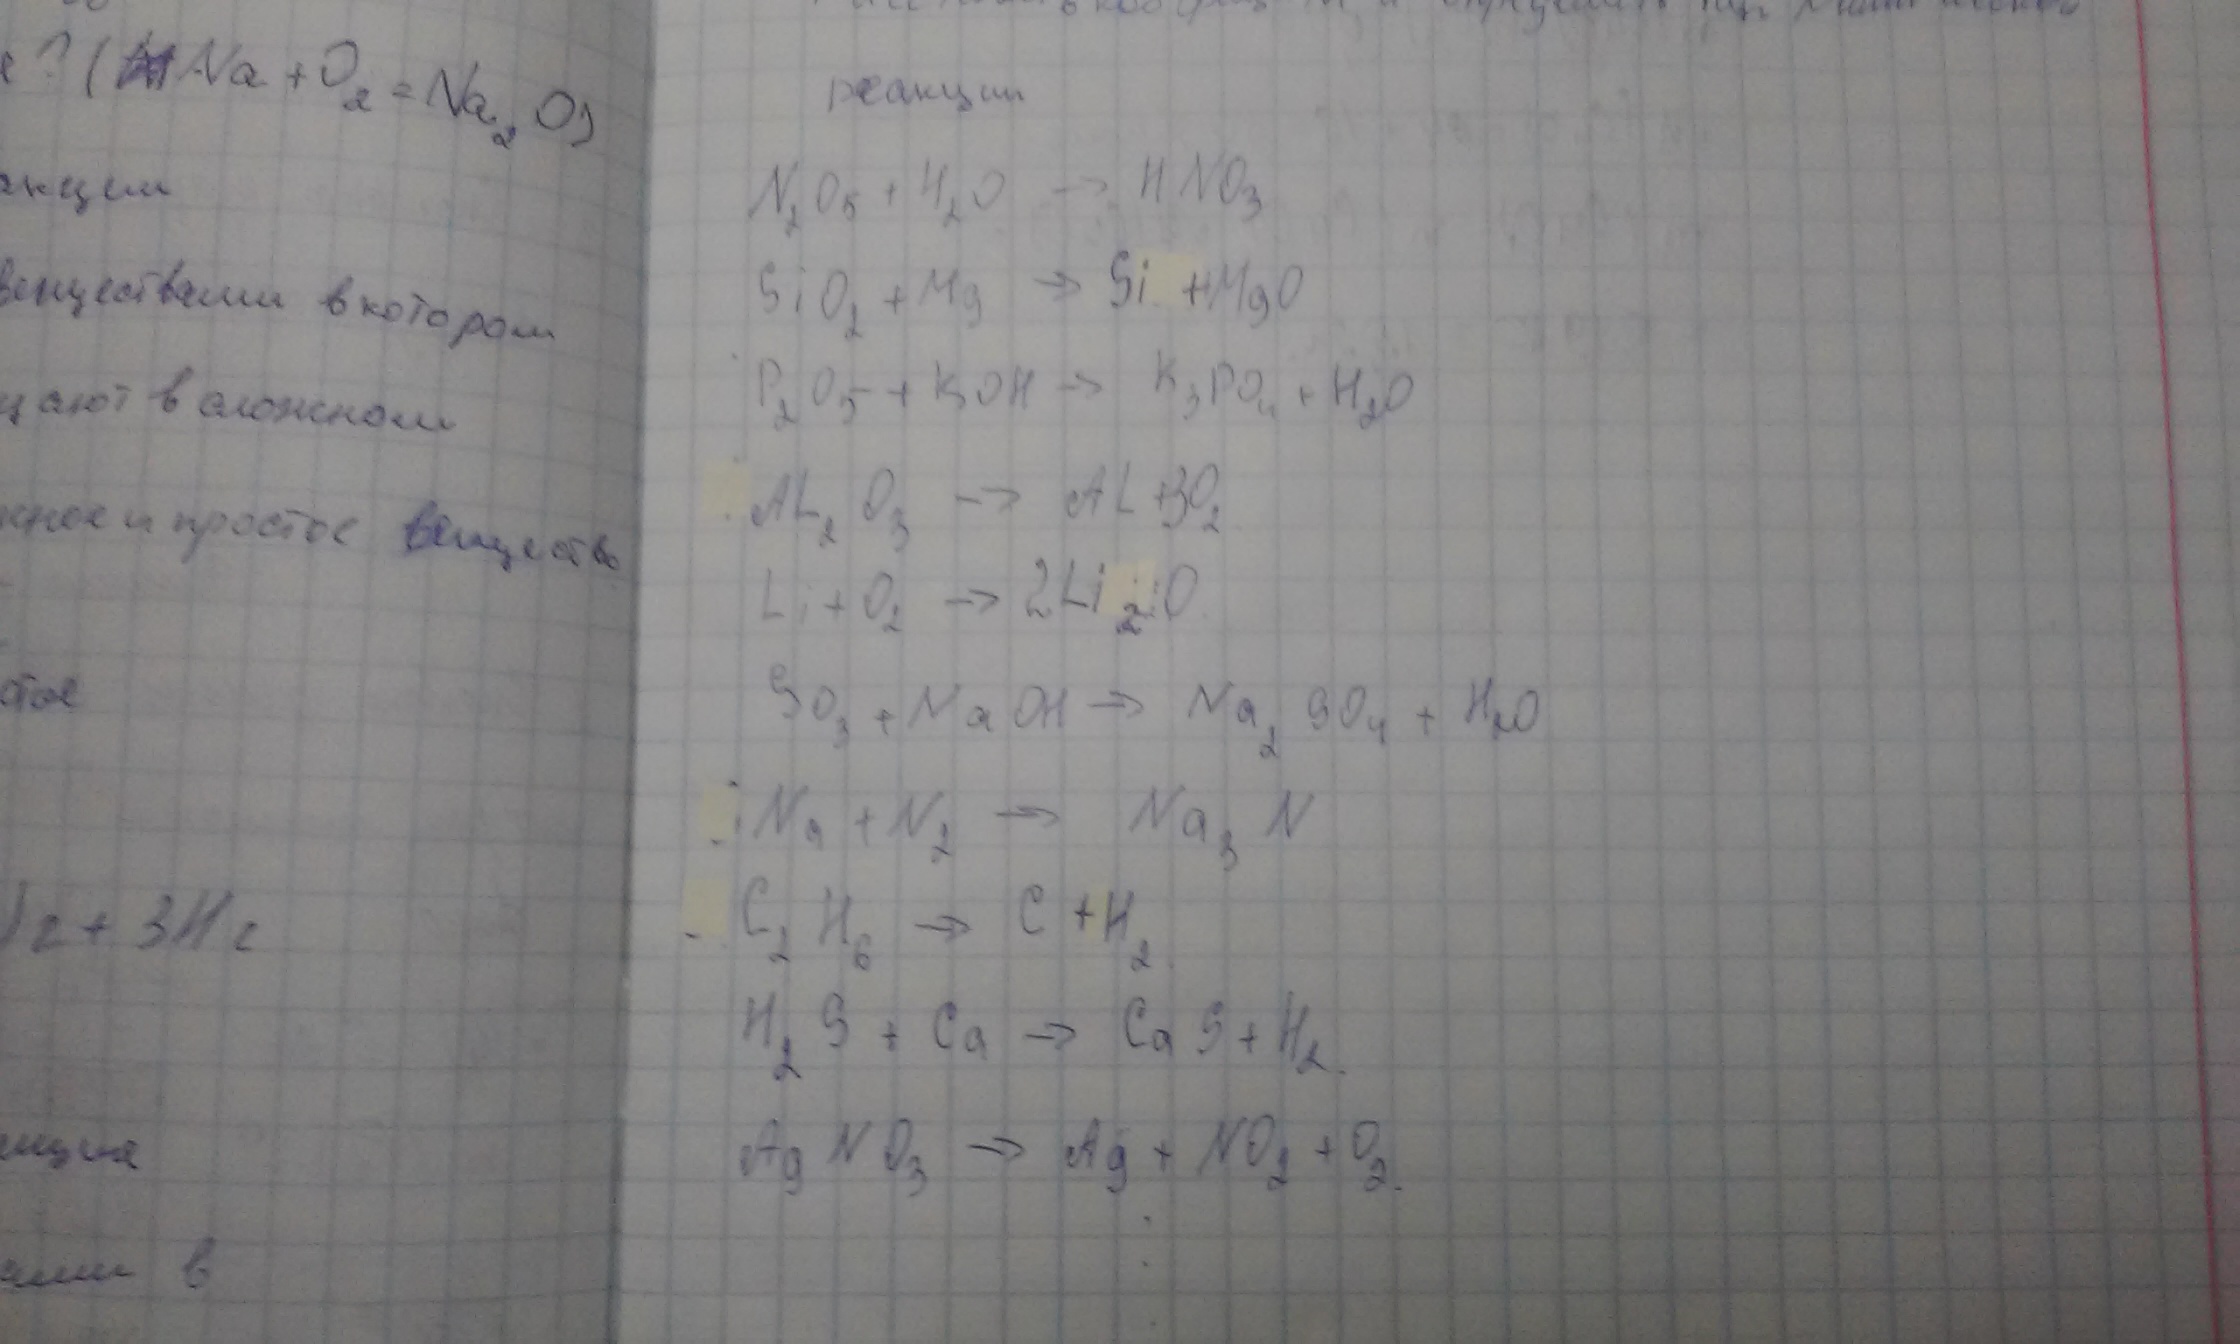 ? (Na + O2 = Na2O)
веществами в котором
в сложном
и простое вещество
+ 3H2
в
определить тип химической
реакции
N2O5 + H2O → HNO3
SiO2 + Mg → Si + MgO
P2O5 + KOH → K3PO4 + H2O
AL2O3 → AL + 3O2
Li + O2 → 2Li2O
SO3 + NaOH → Na2SO4 + H2O
Na + N2 → Na3N
C2H6 → C + H2.
H2S + Ca → CaS + H2.
AgNO3 → Ag + NO2 + O2.